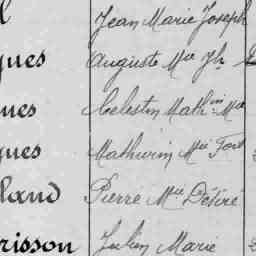 l Jean Marie Joseph
ques Auguste Mie Jh
ques Celestin Mathin Mie
ques Mathurin Mie Fois
land Pierre Mie Désiré
risson Julien Marie